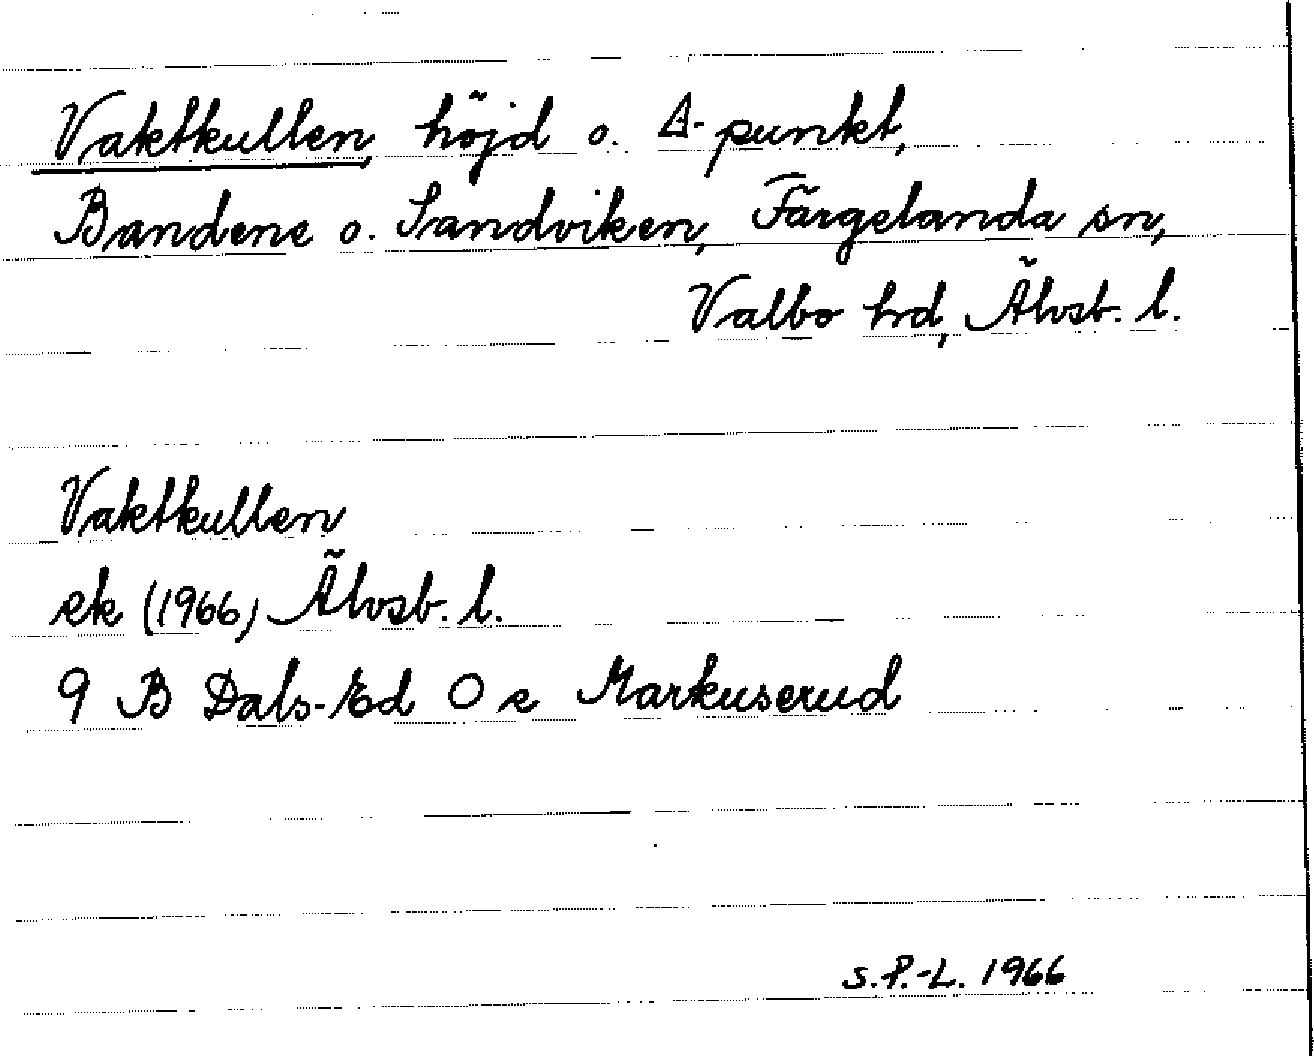 Vaktkullen, höjd o. Δ-punkt,
Bandene o. Sandviken, Färgelanda sn,
Valbo hd, Älvsb. l.
Vaktkullen
ek (1966) Älvsb. l.
9 B Dals-Ed O e Markuserud
S.P.-L. 1966